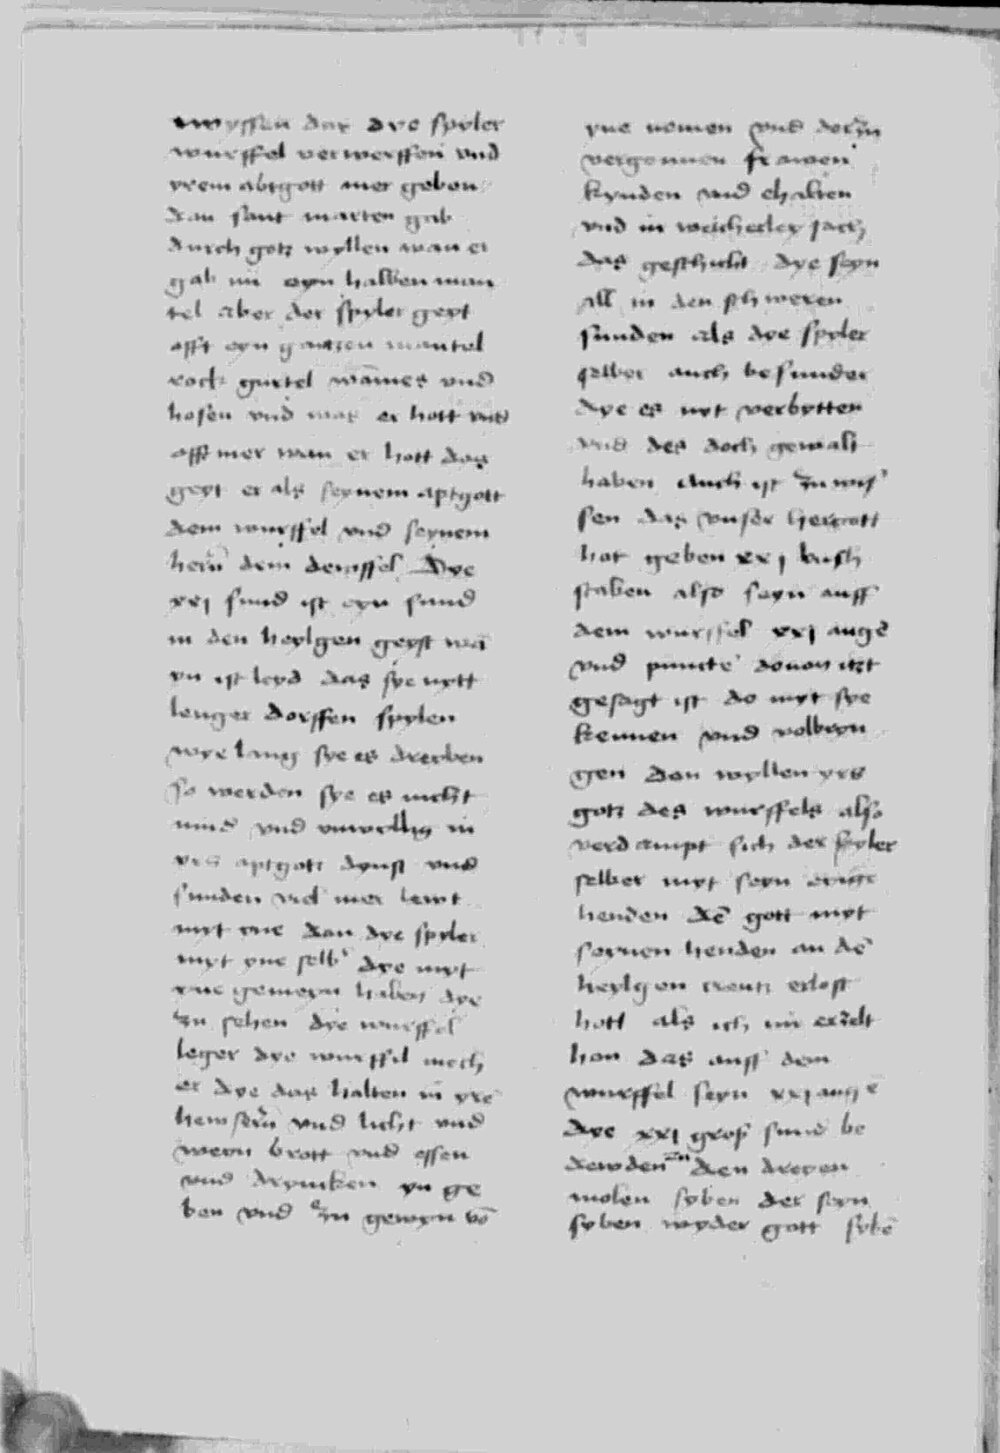 wyssen das dye spyler
wurffel verwerffen vnd
yrem abtgott mer geben
dan sant marten gab
durch gotz wyllen wan er
gab im eyn halben man
tel aber der spyler geyt
offt eyn gantzen mantel
rock gurtel wames vnd
hosen vnd was er hott vnd
offt mer wan er hott das
geyt er als seynem aptgott
dem wurffel vnd seynem
hern dem dewffel Dye
xxj sund ist eyn sund
in den heylgen geyst wā
yn ist leyd das sye nytt
lenger dorffen spylen
wye lang sye es dreyben
so werden sye es nicht
mud vnd vnwyllig in
yrs aptgotz dynst vnd
sunden viel mer lewt
myt yne dan dye spyler
myt yne selbs dye myt
yne gemeyn haben dye
zu sehen dye wurffel
leger dye wurffel mech
er dye das halten in yrē
hewsern vnd licht vnd
weyn brott vnd essen
vnd drynken yn ge
ben vnd zu gewyn vō
yne nemen vnd dorzu
vergonnen frawen
kynden vnd ehalten
vnd in welicherley sach
das geschicht dye seyn
all in den schweren
sunden als dye spyler
selber auch besunder
dye es nyt verbytten
vnd des doch gewalt
haben Auch ist zu wis
sen das vnser hergott
hat geben xxj buch
staben also seyn auff
dem wurffel xxj augē
vnd puncte douon itzt
gesagt ist do myt sye
kennen vnd volbryn
gen den wyllen yrs
gotz des wurffels also
verdampt sich der spyler
selber myt seyn eyngē
henden dē gott myt
seynen henden an dē
heylgen creutz erlost
hott als ich im erzelt
hon das auff dem
wurffel seyn xxj augē
dye xxj gros sund be
dewden zu den dreyen
molen syben der seyn
syben wyder gott sybē